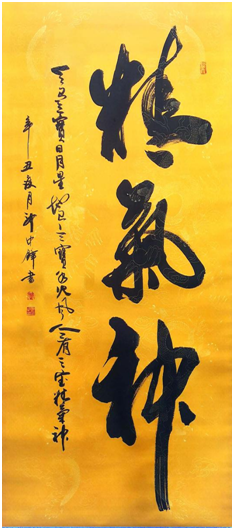 精氣神
天有三寶日月星地有三寶水火風人有三寶精氣神
辛丑夏月書